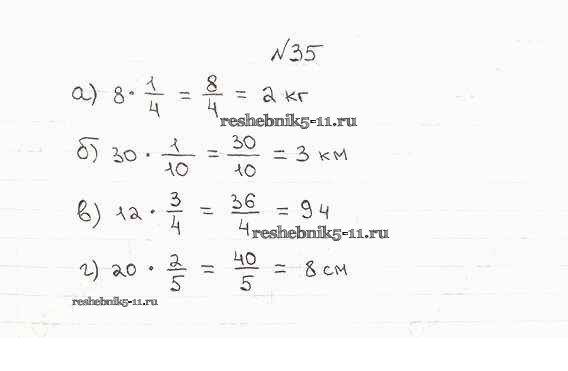 №35
а) 8 · 1/4 = 8/4 = 2 кг
reshebnik5-11.ru
б) 30 · 1/10 = 30/10 = 3 км
в) 12 · 3/4 = 36/4 = 9 ч
reshebnik5-11.ru
г) 20 · 2/5 = 40/5 = 8 см
reshebnik5-11.ru